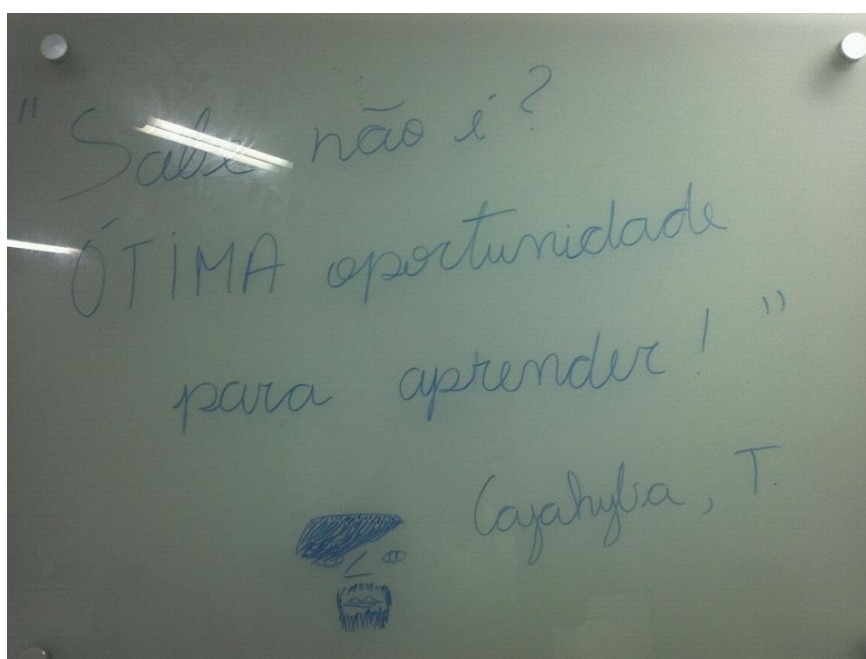 "Sabe não é?
ÓTIMA oportunidade
para aprender!"
Cajahyba, T.